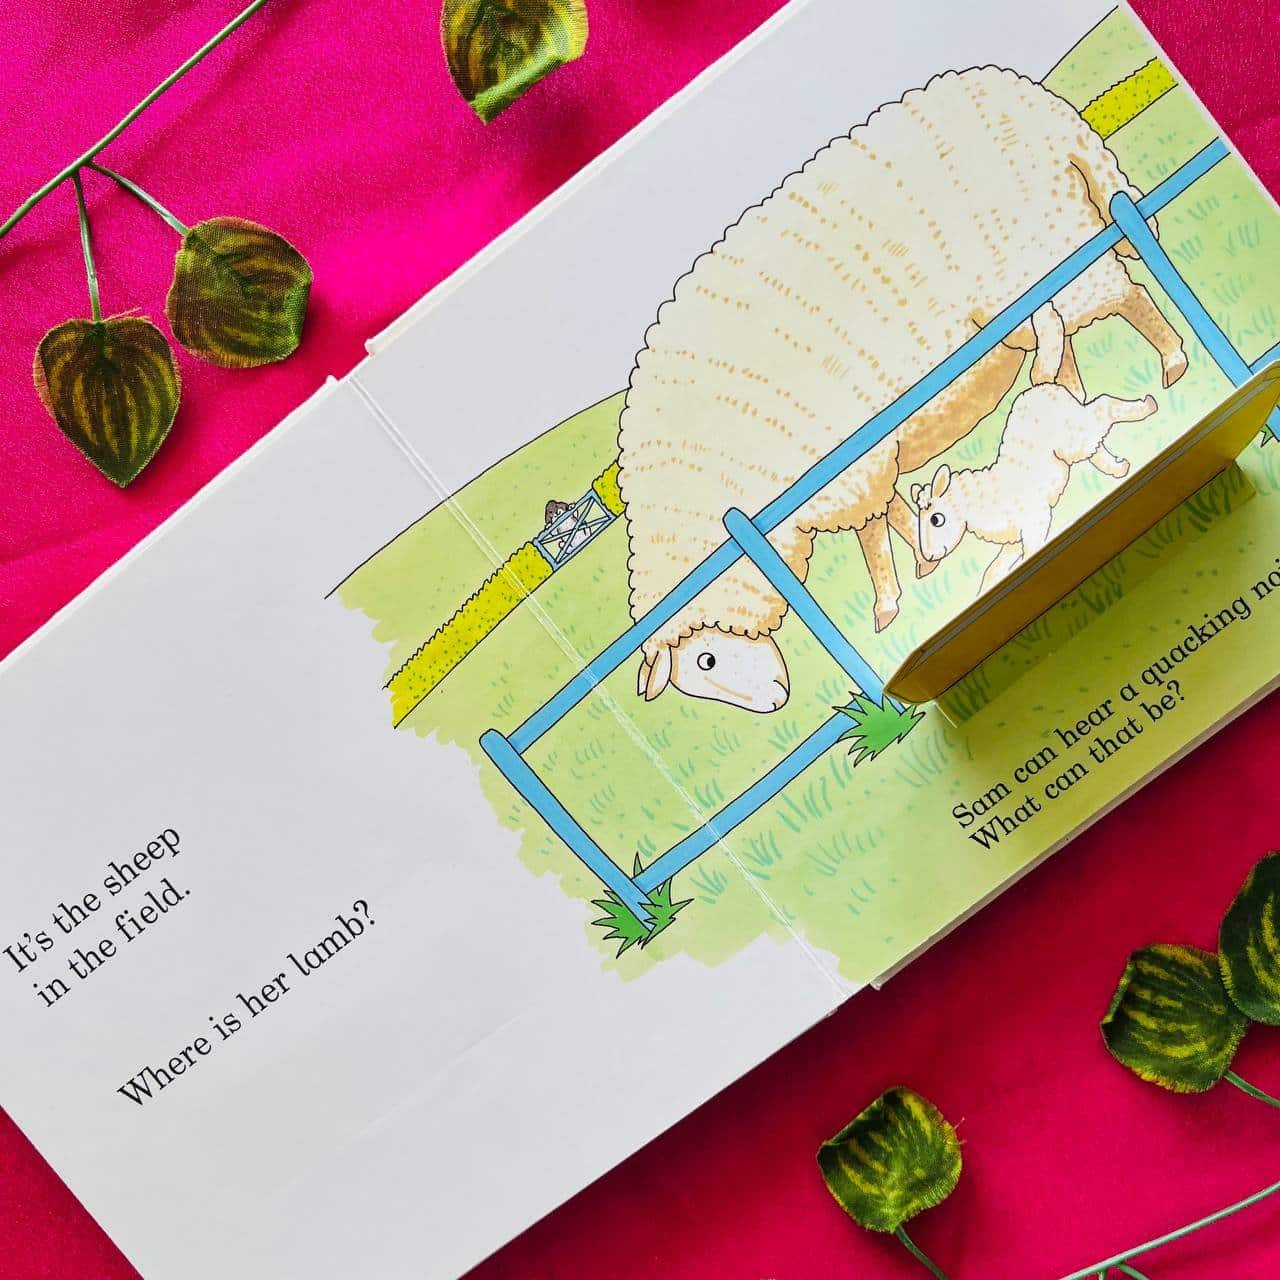 It's the sheep
in the field.
Where is her lamb?
Sam can hear a quacking
What can that be?